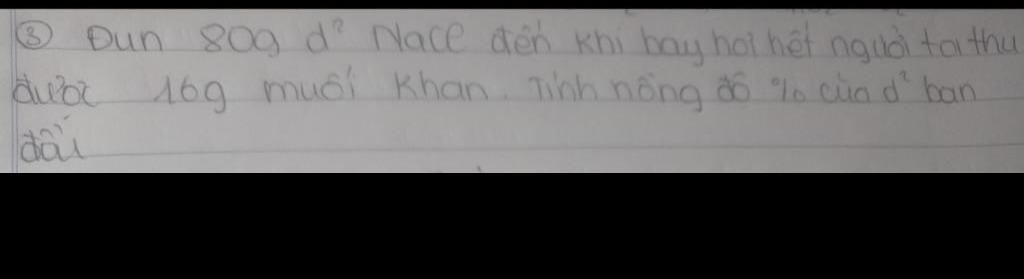 ③ Đun 80g d² NaCl đến khi bay hơi hết người ta thu
được 16g muối khan. Tính nồng độ % của d² ban
đầu